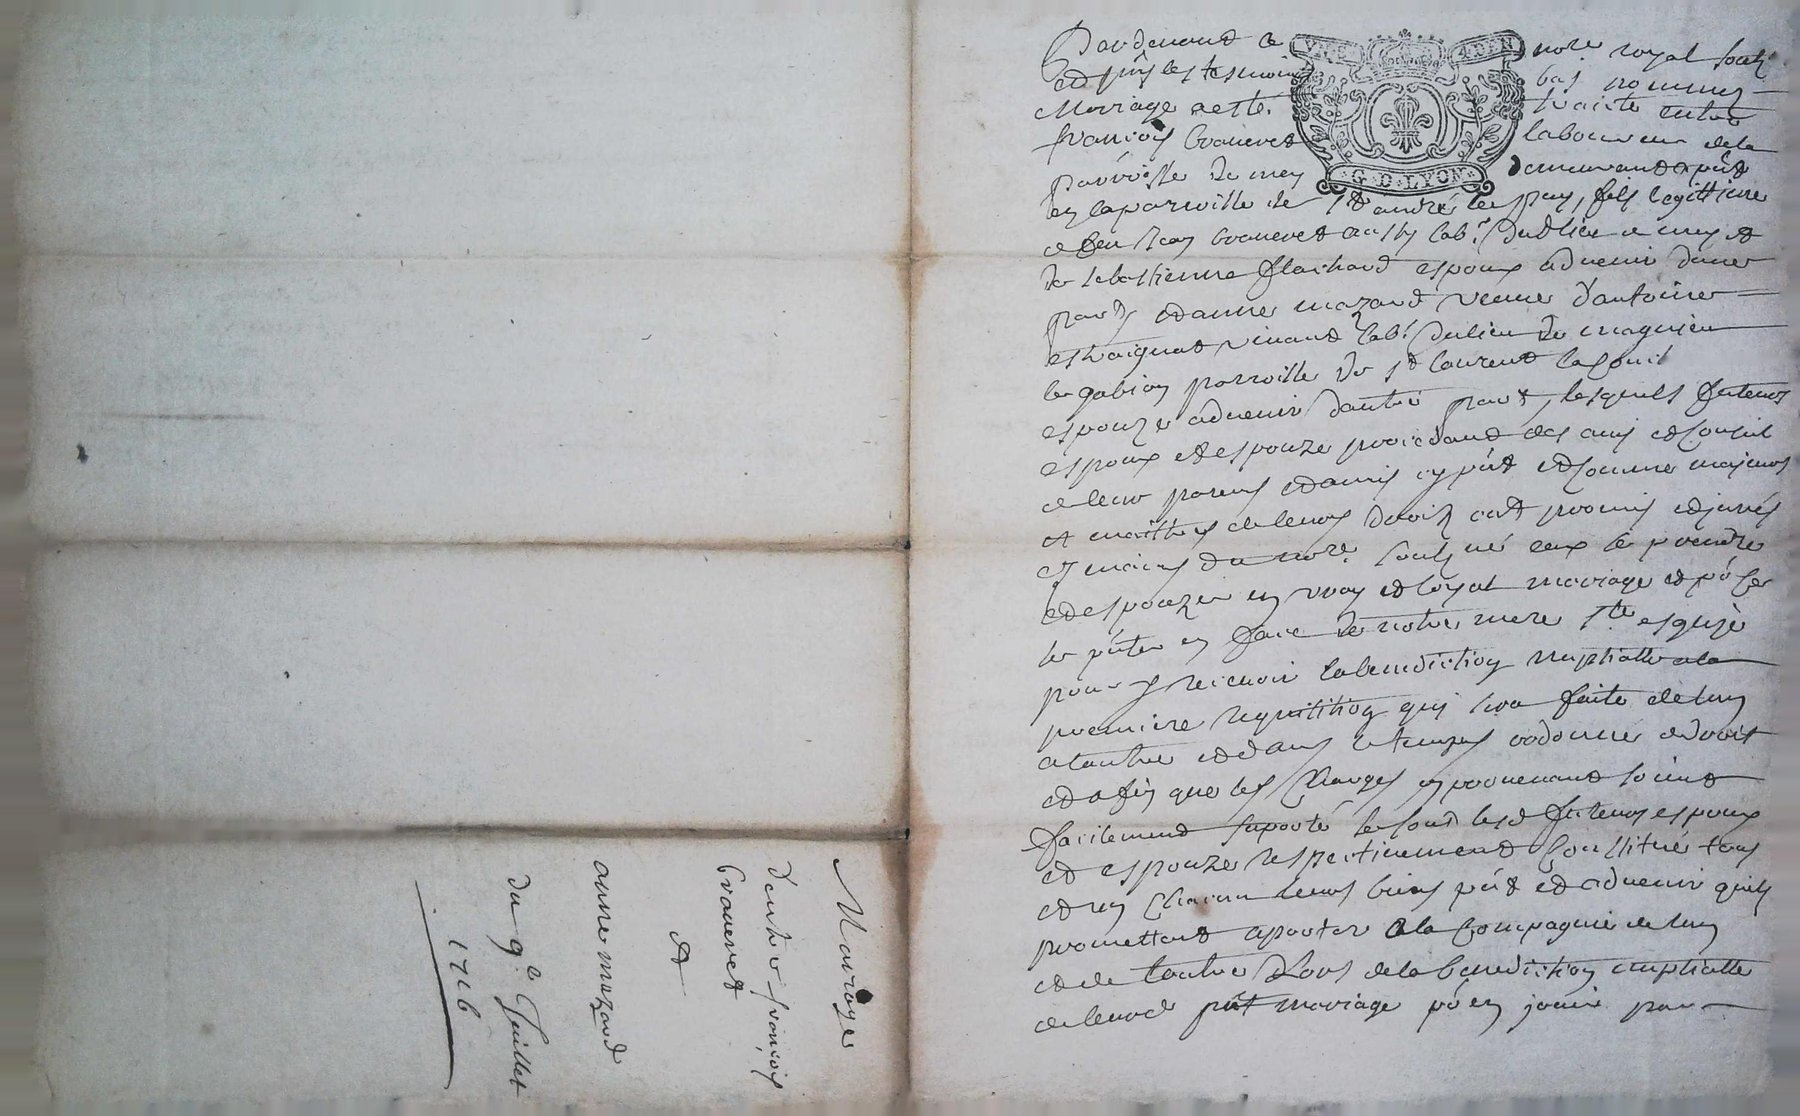 Pardevant le notre royal soubz
et puis les tesmoins bas nommez
Mariage a esté traicté entre
françois braneret laboureur de la
parroisse de mey demeurant a pnt
en la parroisse de St andré le puy, fils legitime
de feu Jean braneret aussy labr. dudt lieu de mey et
de sebastienne flachard espoux advenir dune
part, et anne mazard veuve d'antoine
vivant labr. du lieu de magnieu
le gabion parroisse de St laurent la Conil
espouze advenir dautre part, lesquels futurs
espoux et espouze procedant des avis et Conseil
de leur parens et amis cy pnt et comme majeurs
et maistres de leurs droits ont promis et jurés
es mains du notre soubzné eux se prendre
et espouzer en vray et loyal mariage et po. ce
se pnter en face de notre mere Ste esglize
pour y recevoir la benediction nuptialle a la
premiere requisition quy sera faite de lun
a lautre et dans le temps ordonné de droit
et afin que les Charges en provenant soient
facilement suporté se sont lesd futurs espoux
et espouze respectivement Constitué tous
et un Chacun leurs biens pnt et advenir quils
promettent aporter a la Compagnie de lun
et de lautre Lors de la benediction nuptialle
de leurd pnt mariage po. en jouir par
Mariage
d'entre françois
braneret
et
anne mazard
du 9e Juillet
1716
VN S 4 DEN
G·D·LYON